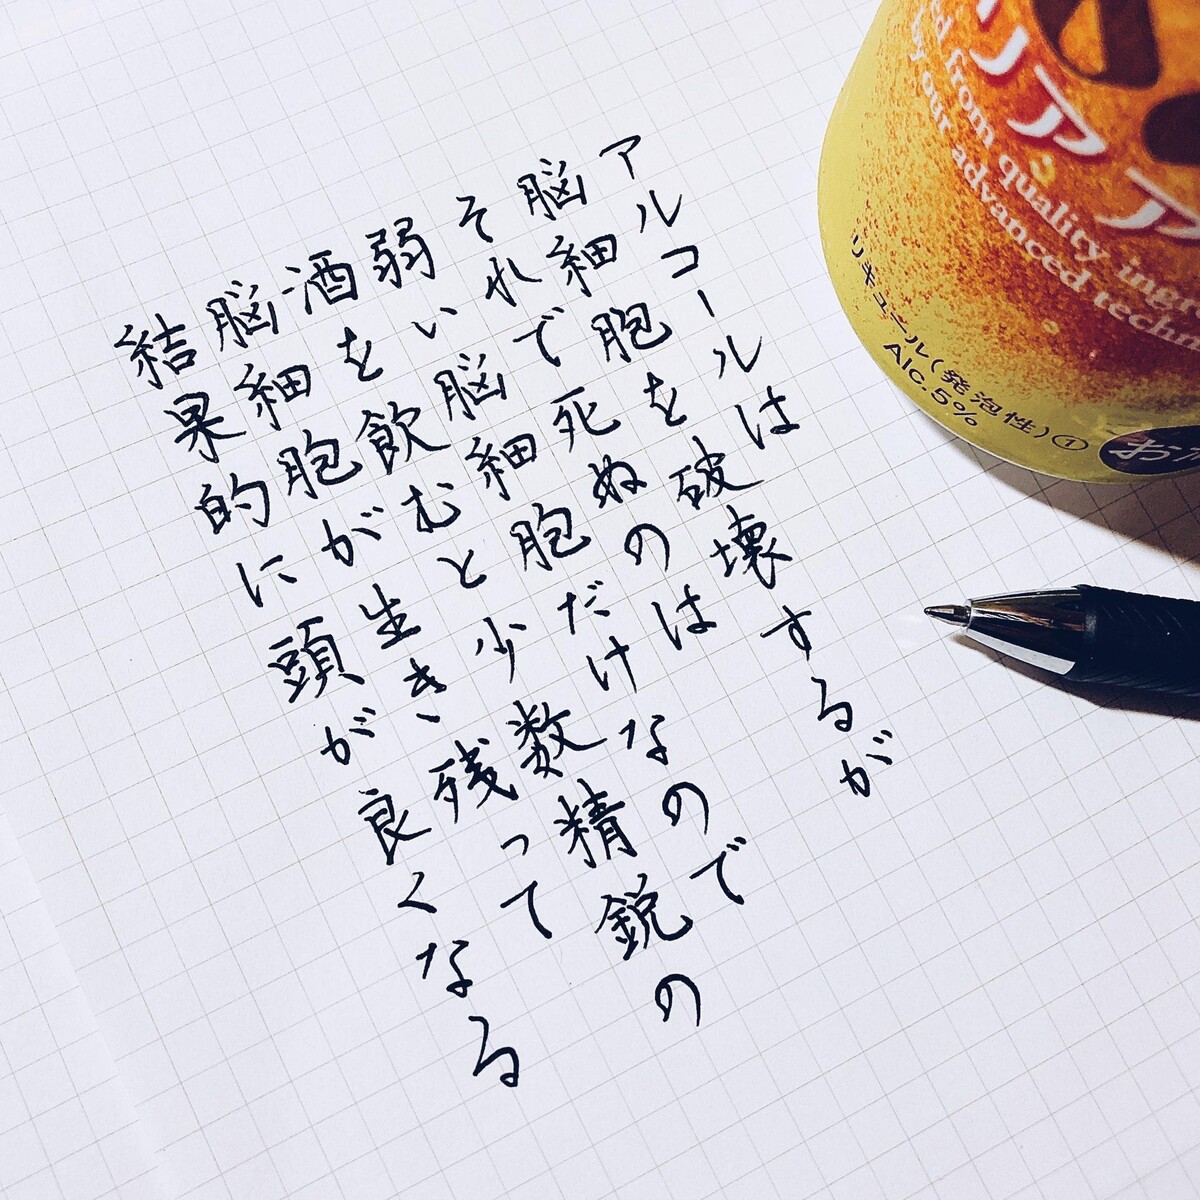 アルコールは
脳細胞を破壊するが
それで死ぬのは
弱い脳細胞だけなので
酒を飲むと少数精鋭の
脳細胞が生き残って
結果的に頭が良くなる
リア
from quality
by our advanced
リキュール(発泡性)①
Alc.5%
お